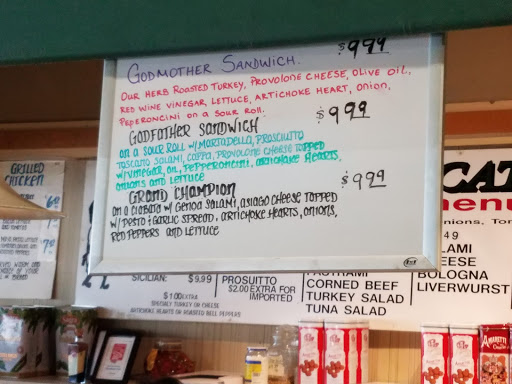 GODMOTHER SANDWICH. $9.99
OUR HERB ROASTED TURKEY, PROVOLONE CHEESE, OLIVE OIL,
RED WINE VINEGAR, LETTUCE, ARTICHOKE HEART, ONION,
PEPERONCINI ON A SOUR ROLL.
GODFATHER SANDWICH $9.99
ON A SOUR ROLL W/ MARTADELLA, PROSCIUTTO
TOSCANO SALAMI, COPPA, PROVOLONE CHEESE TOPPED
W/ VINEGAR, OIL, PEPPERONCINI, ARTICHOKE HEARTS,
ONIONS AND LETTUCE
GRAND CHAMPION $9.99
ON A CIABATA W/ GENOA SALAMI, ASIAGO CHEESE TOPPED
W/ PESTO & GARLIC SPREAD, ARTICHOKE HEARTS, ONIONS,
RED PEPPERS AND LETTUCE
GRILLED
CHICKEN
CAT
enu
nions, Tor
49
LAMI
EESE
BOLOGNA
LIVERWURST
SICILIAN: $9.99
$1.00 EXTRA
SPECIALTY TURKEY OR CHEESE
ARTICHOKE HEARTS OR ROASTED BELL PEPPERS
PROSUITTO
$2.00 EXTRA FOR
IMPORTED
PASTRAMI
CORNED BEEF
TURKEY SALAD
TUNA SALAD
AMARETTI